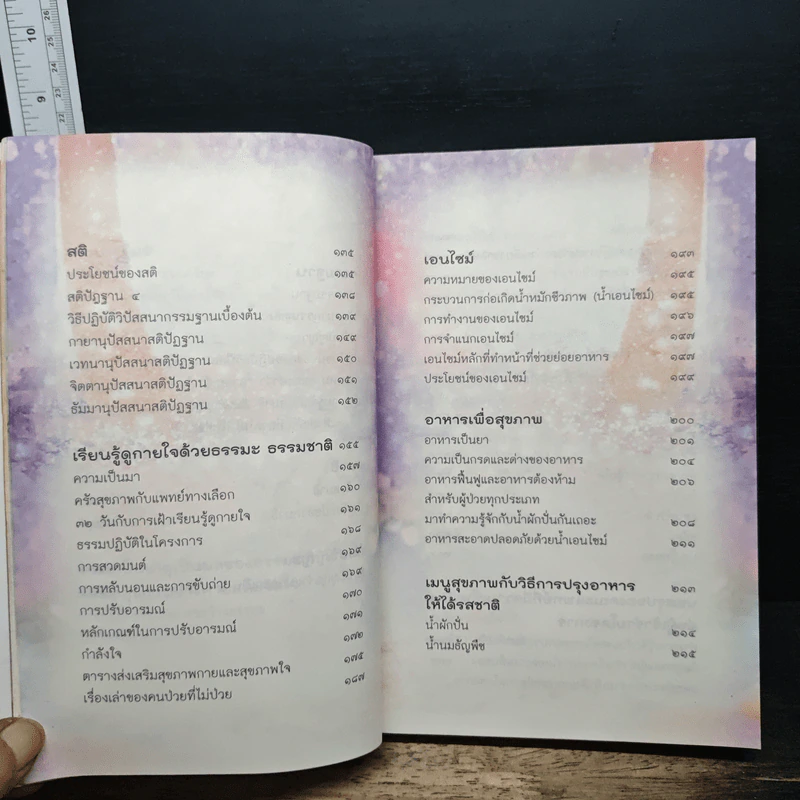 10
9
26
25
24
23
22
สติ ๑๓๕
ประโยชน์ของสติ ๑๓๕
สติปัฏฐาน ๔ ๑๓๘
วิธีปฏิบัติวิปัสสนากรรมฐานเบื้องต้น ๑๓๙
กายานุปัสสนาสติปัฏฐาน ๑๔๙
เวทนานุปัสสนาสติปัฏฐาน ๑๕๐
จิตตานุปัสสนาสติปัฏฐาน ๑๕๑
ธัมมานุปัสสนาสติปัฏฐาน ๑๕๒
เรียนรู้ดูกายใจด้วยธรรมะ ธรรมชาติ ๑๕๕
ความเป็นมา ๑๕๗
ครัวสุขภาพกับแพทย์ทางเลือก ๑๖๐
๓๒ วันกับการเฝ้าเรียนรู้ดูกายใจ ๑๖๑
ธรรมปฏิบัติในโครงการ ๑๖๘
การสวดมนต์ ๑๖๙
การหลับนอนและการขับถ่าย ๑๖๙
การปรับอารมณ์ ๑๗๐
หลักเกณฑ์ในการปรับอารมณ์ ๑๗๑
กำลังใจ ๑๗๒
ตารางส่งเสริมสุขภาพกายและสุขภาพใจ ๑๗๕
เรื่องเล่าของคนป่วยที่ไม่ป่วย ๑๘๗
เอนไซม์ ๑๙๓
ความหมายของเอนไซม์ ๑๙๕
กระบวนการก่อเกิดน้ำหมักชีวภาพ (น้ำเอนไซม์) ๑๙๕
การทำงานของเอนไซม์ ๑๙๖
การจำแนกเอนไซม์ ๑๙๗
เอนไซม์หลักที่ทำหน้าที่ช่วยย่อยอาหาร ๑๙๗
ประโยชน์ของเอนไซม์ ๑๙๙
อาหารเพื่อสุขภาพ ๒๐๐
อาหารเป็นยา ๒๐๑
ความเป็นกรดและด่างของอาหาร ๒๐๔
อาหารฟื้นฟูและอาหารต้องห้าม ๒๐๖
สำหรับผู้ป่วยทุกประเภท
มาทำความรู้จักกับน้ำผักปั่นกันเถอะ ๒๐๘
อาหารสะอาดปลอดภัยด้วยน้ำเอนไซม์ ๒๑๑
เมนูสุขภาพกับวิธีการปรุงอาหาร ๒๑๓
ให้ได้รสชาติ
น้ำผักปั่น ๒๑๔
น้ำนมธัญพืช ๒๑๕